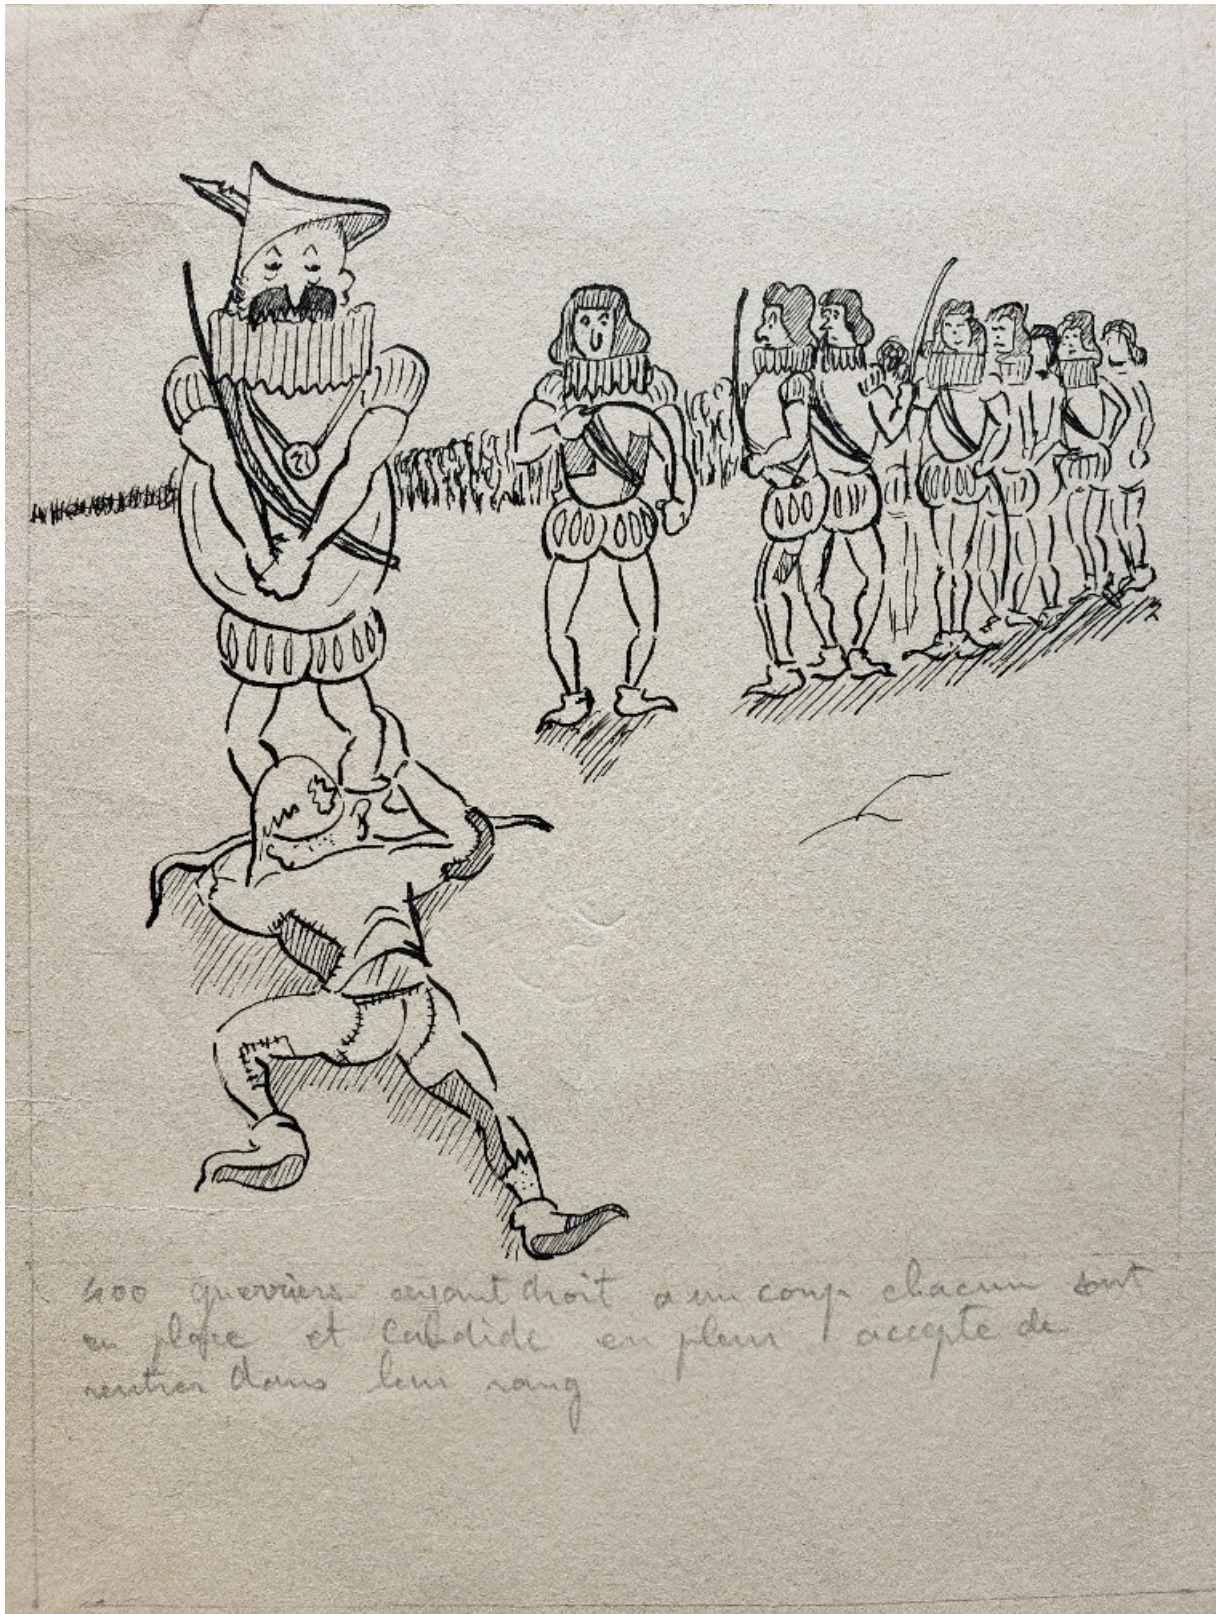 400 guerriers ayant droit a un coup chacun sont
en place et Candide en pleur accepte de
rentrer dans leur rang